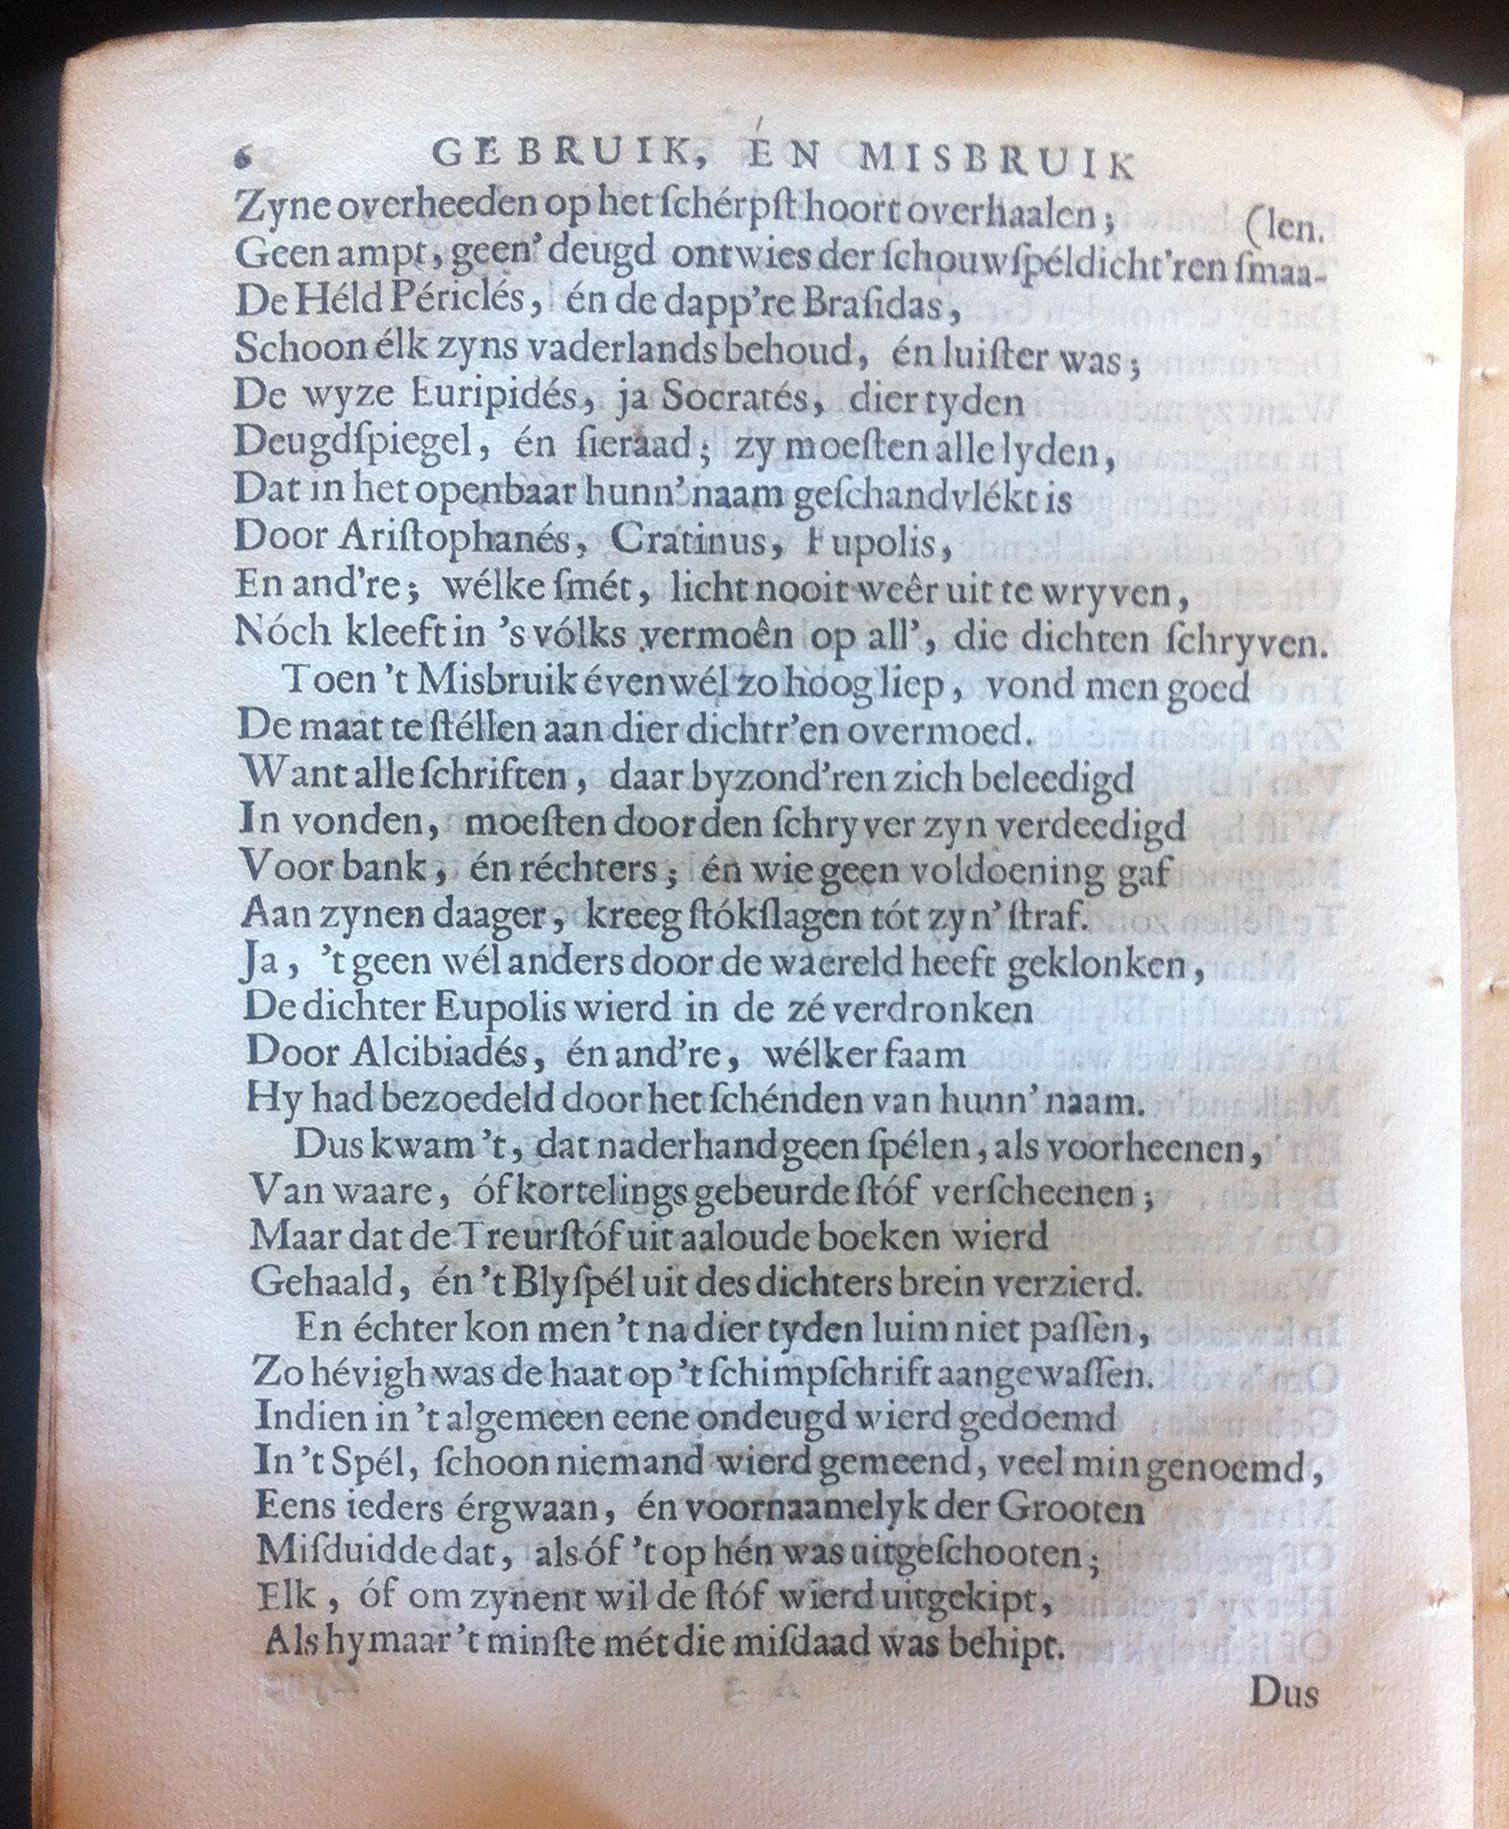 6 GEBRUIK, ÉN MISBRUIK
Zyne overheeden op het ſchérpſt hoort overhaalen; (len.
Geen ampt, geen’ deugd ontwies der ſchouwſpéldicht’ren ſmaa-
De Héld Périclés, én de dapp’re Braſidas,
Schoon élk zyns vaderlands behoud, én luiſter was;
De wyze Euripidés, ja Socratés, dier tyden
Deugdſpiegel, én ſieraad; zy moeſten alle lyden,
Dat in het openbaar hunn’ naam geſchandvlékt is
Door Ariſtophanés, Cratinus, Eupolis,
En and’re; wélke ſmét, licht nooit weêr uit te wryven,
Nóch kleeft in ’s vólks vermoên op all’, die dichten ſchryven.
Toen ’t Misbruik évenwél zo hoog liep, vond men goed
De maat te ſtéllen aan dier dichtr’en overmoed.
Want alle ſchriften, daar byzond’ren zich beleedigd
In vonden, moeſten door den ſchryver zyn verdeedigd
Voor bank, én réchters; én wie geen voldoening gaf
Aan zynen daager, kreeg ſtókſlagen tót zyn’ ſtraf.
Ja, ’t geen wél anders door de waereld heeft geklonken,
De dichter Eupolis wierd in de zé verdronken
Door Alcibiadés, én and’re, wélker faam
Hy had bezoedeld door het ſchénden van hunn’ naam.
Dus kwam ’t, dat naderhand geen ſpélen, als voorheenen,
Van waare, óf kortelings gebeurde ſtóf verſcheenen;
Maar dat de Treurſtóf uit aaloude boeken wierd
Gehaald, én ’t Blyſpél uit des dichters brein verzierd.
En échter kon men ’t na dier tyden luim niet paſſen,
Zo hévigh was de haat op ’t ſchimpſchrift aangewaſſen.
Indien in ’t algemeen eene ondeugd wierd gedoemd
In ’t Spél, ſchoon niemand wierd gemeend, veel min genoemd,
Eens ieders érgwaan, én voornaamelyk der Grooten
Miſduidde dat, als óf ’t op hén was uitgeſchooten;
Elk, óf om zynent wil de ſtóf wierd uitgekipt,
Als hy maar ’t minſte mét die miſdaad was behipt.
Dus